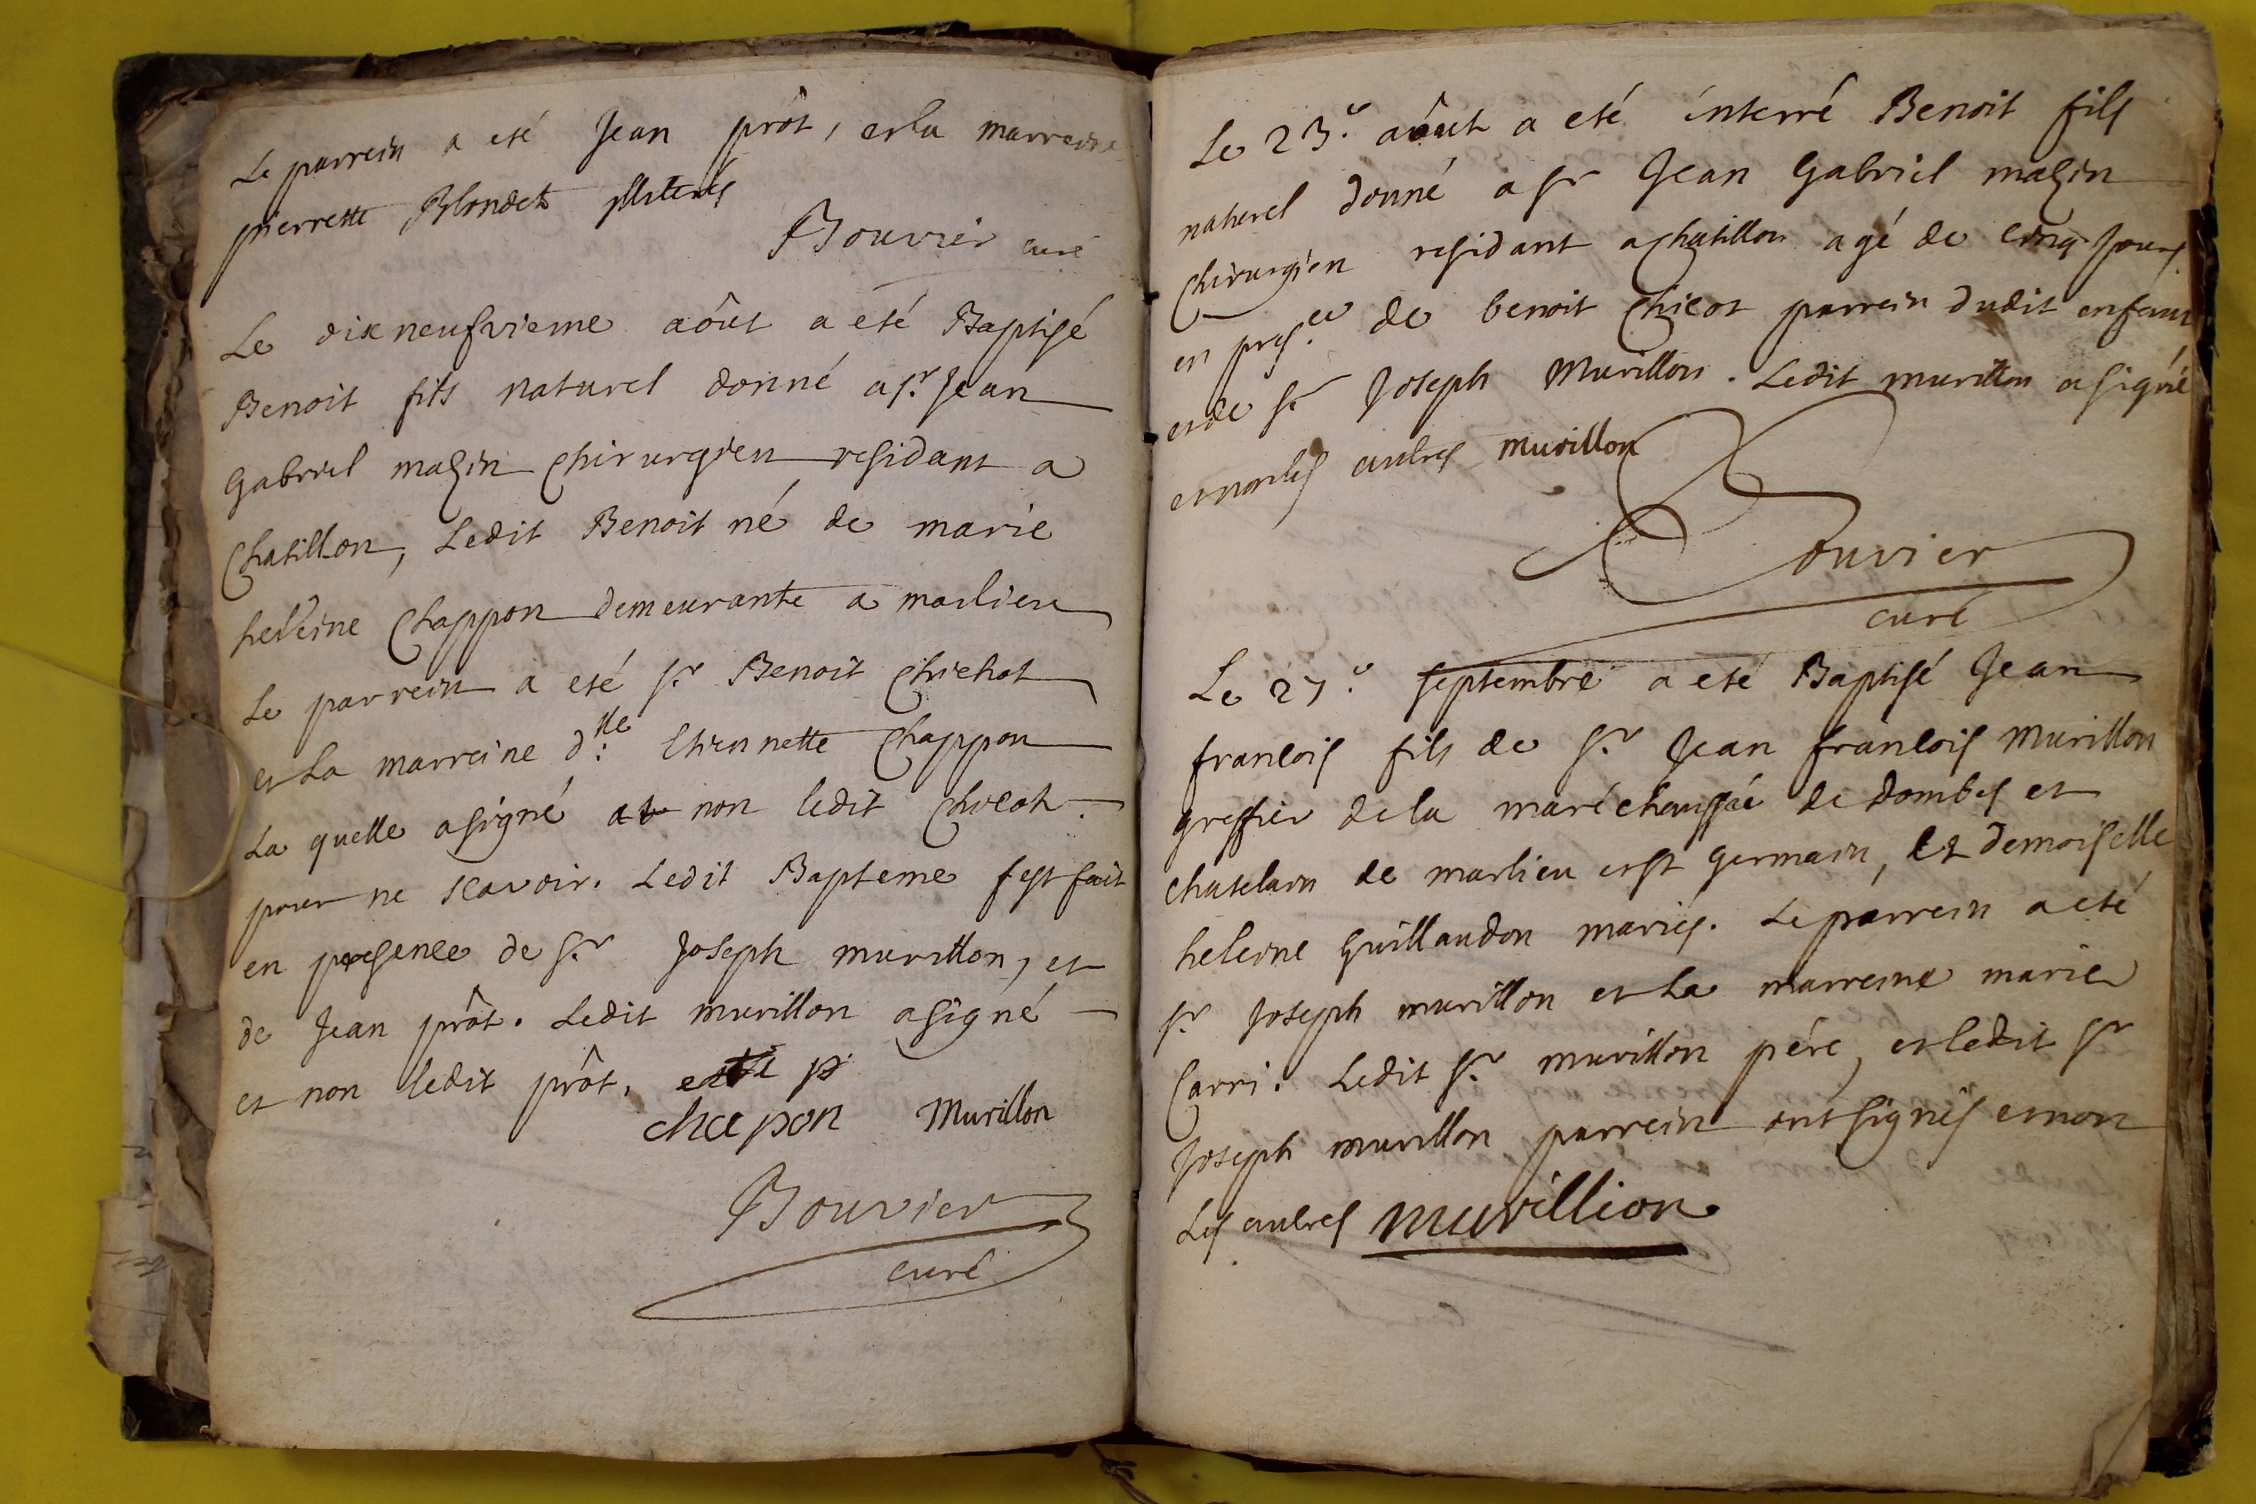 Le parrein a eté Jean prôt, et la marreine
pierrette Blondet illiterés
Bouvier curé
Le dix neufvieme aôut a eté Baptisé
Benoit fils naturel donné a sr. Jean
Gabriel mazin chirurgien residant a
Chatillon, Ledit Benoit né de marie
heleine Chappon demeurante a marlieu
Le parrein a eté sr. Benoit Chichot
et La marreine dlle. Etiennette Chappon
La quelle a signé et non ledit Chicot
pour ne scavoir. Ledit Bapteme s'est fait
en presence de sr. Joseph murillon, et
de Jean prôt. Ledit murillon a signé
et non ledit prôt.
chapon Murillon
Bouvier
curé
Le 23e. aôut a eté interré Benoit fils
naturel donné a sr Jean Gabriel mazin
Chirurgien residant a chatillon agé de cinq jours
en presce. de benoit Chicot parrein dudit enfant
et de sr Joseph Murillon. Ledit murillon a signé
et non les autres murillon
Bouvier
curé
Le 27e. septembre a eté Baptisé Jean
francois fils de sr. Jean francois Murillon
greffier de la maréchaussée de dombes et
chatelain de marlieu et st germain, et demoiselle
heleine Guillaudon mariés. Le parrein a eté
sr Joseph murillon et La marreine marie
Carri. Ledit sr. murillon pére, et ledit sr
Joseph murillon parrein ont signés et non
Les autres murillion